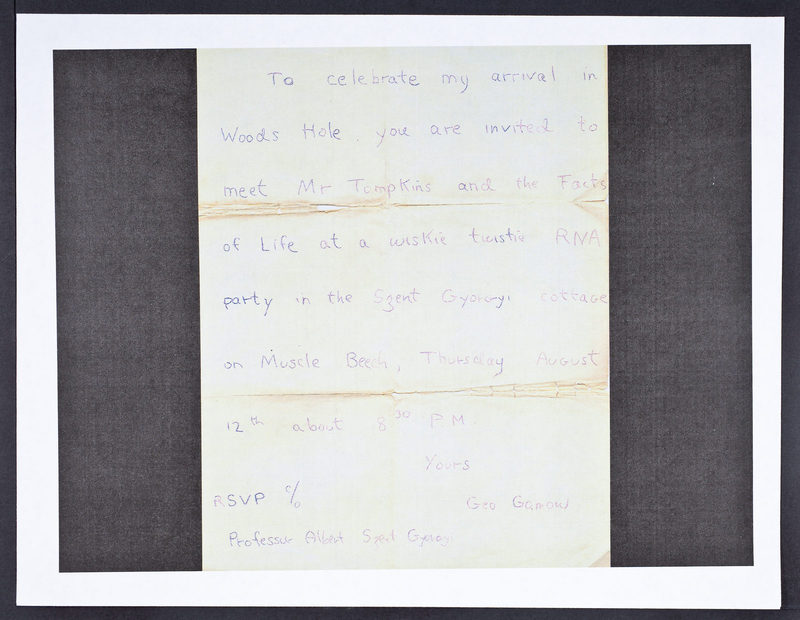 To celebrate my arrival in
Woods Hole. you are invited to
meet Mr TompKins and the Facts
of Life at a wiskie twistie RNA
party in the Szent Gyorgyi cottage
on Muscle Beech, Thursday August
12th about 8 30 P.M.
Yours
RSVP c/o
Geo Gamow
Professur Albert Szent Gyorgyi